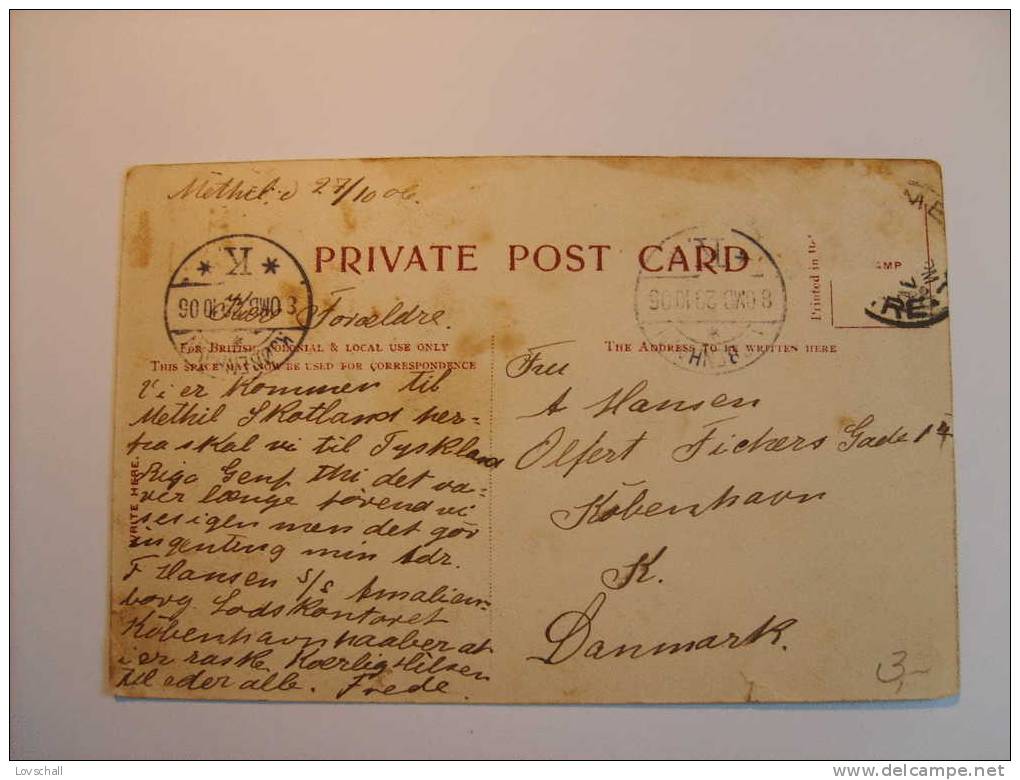 Methil d 27/10 06.
PRIVATE POST CARD
K
8.OMB 29.10.06
K
8.OMB 29.10.06
Printed in
RE
Forældre.
FOR BRITISH, COLONIAL & LOCAL USE ONLY
THIS SPACE MAY NOW BE USED FOR CORRESPONDENCE
THE ADDRESS TO BE WRITTEN HERE
WRITE HERE.
Vi er kommen til
Methil Skotland her-
fra skal vi til Tyskland
Riga Genf thi det va-
rer længe førend vi
ses igen men det gör
ingenting min Adr.
F Hansen S/S Amalien-
borg Lodskontoret
København haaber at
i er raske Kærlig Hilsen
til eder alle. Frede.
Fru
A Hansen
Olfert Fichers Gade 14
København
K.
Danmark.
3,-
Lovschall
delcampe.net